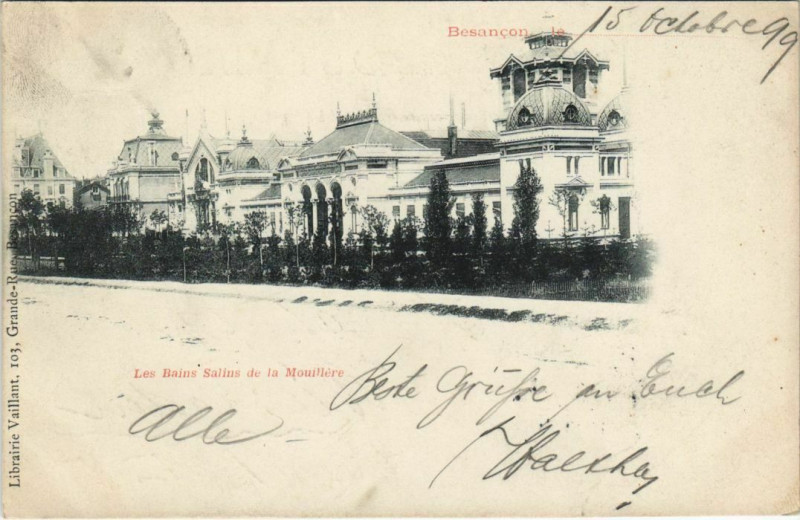 Besançon, le 15 Octobre 99
Librairie Vaillant, 103, Grande-Rue, Besançon
Les Bains Salins de la Mouillère
Beste Grüsse an Euch
Alle